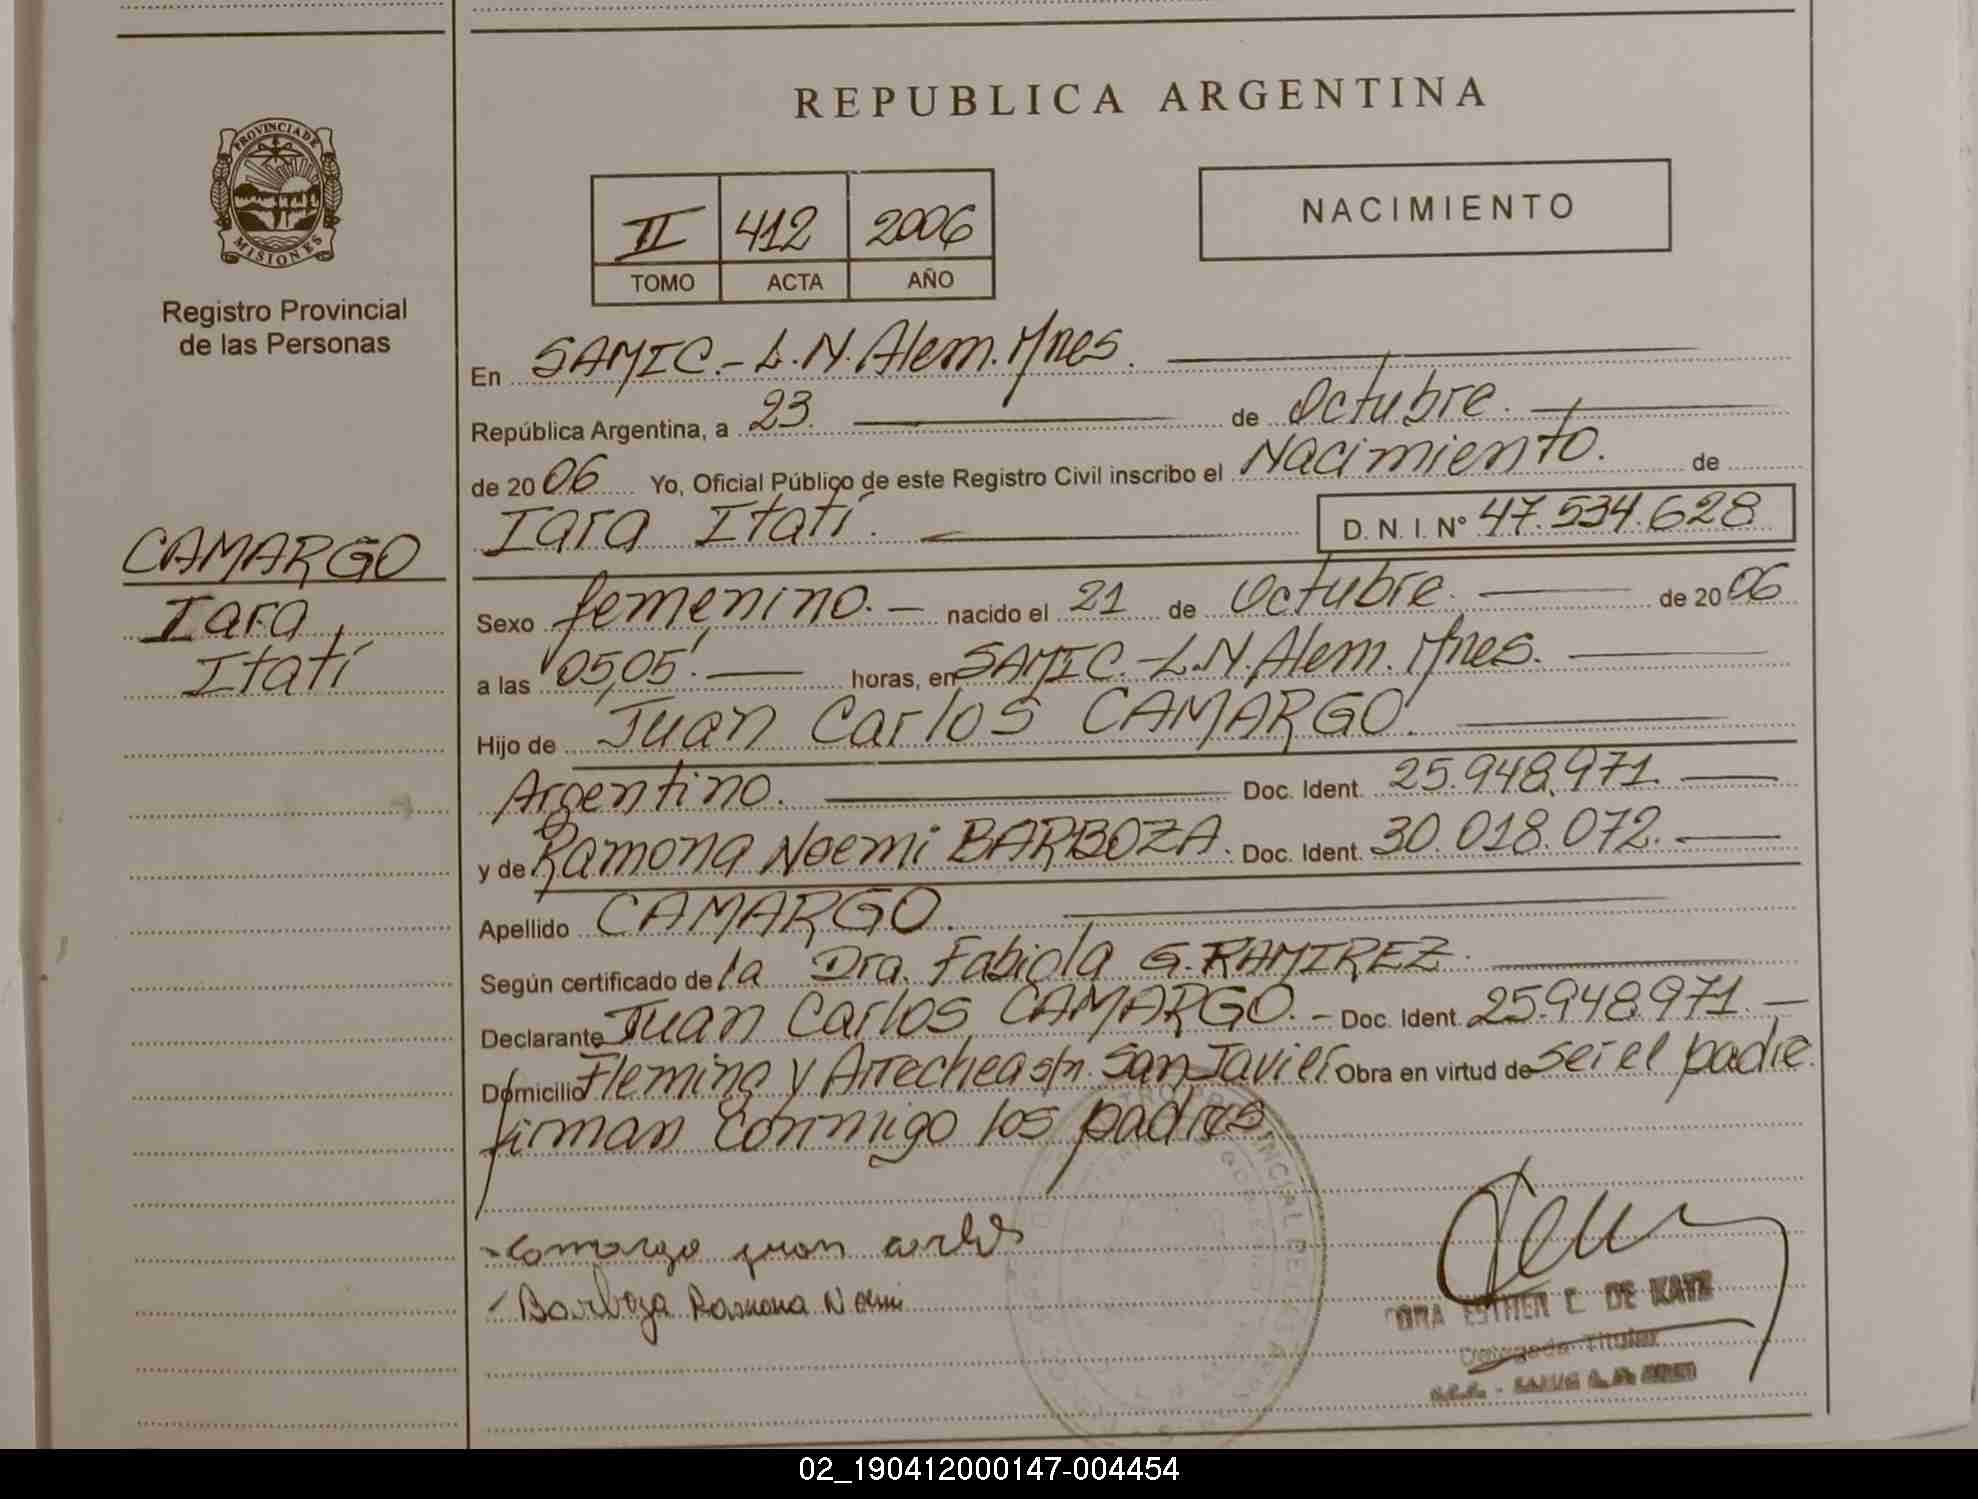 REPUBLICA ARGENTINA
PROVINCIA DE
MISIONES
Registro Provincial
de las Personas
II 412 2006
TOMO ACTA AÑO
NACIMIENTO
En SAMIC.- L.N. Alem. Mnes.
República Argentina, a 23. de Octubre.
de 2006 Yo, Oficial Público de este Registro Civil inscribo el Nacimiento. de
Iara Itatí. D. N. I. N° 47.534.628
CAMARGO
Iara
Itatí
Sexo femenino. nacido el 21 de Octubre. de 2006
a las 05,05'. horas, en SAMIC.-L.N. Alem. Mnes.
Hijo de Juan Carlos CAMARGO.
Argentino. Doc. Ident. 25.948.971.
y de Ramona Noemi BARBOZA. Doc. Ident. 30.018.072.
Apellido CAMARGO.
Según certificado de la Dra. Fabiola G. RAMIREZ.
Declarante Juan Carlos CAMARGO. - Doc. Ident. 25.948.971.
Domicilio Fleming y Arrechea s/n. San Javier Obra en virtud de ser el padre.
firman conmigo los padres
Camargo juan carlos
Barboza Ramona Noemi
ESTHER C. DE KATZ
Delegada Titular
02_190412000147-004454